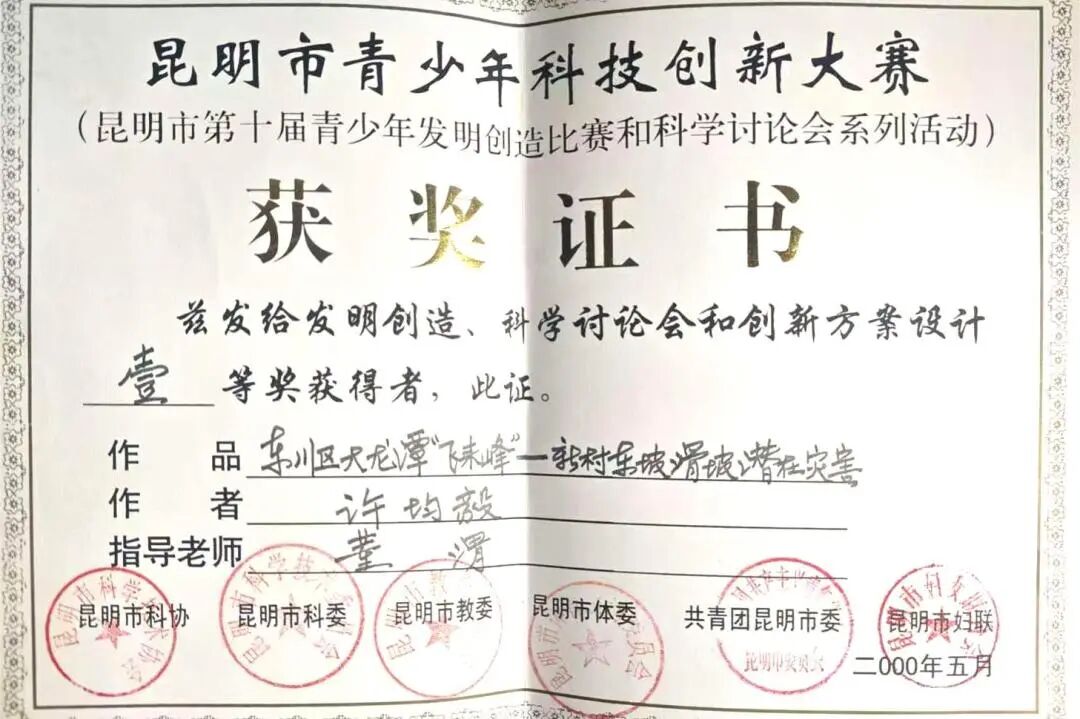 昆明市青少年科技创新大赛
（昆明市第十届青少年发明创造比赛和科学讨论会系列活动）
获奖证书
兹发给发明创造、科学讨论会和创新方案设计
壹等奖获得者，此证。
作品 东川区大龙潭"飞来峰"—新村东坡滑坡潜在灾害
作者 许均毅
指导老师 董渭
昆明市科协 昆明市科委 昆明市教委 昆明市体委 共青团昆明市委 昆明市妇联
二000年五月